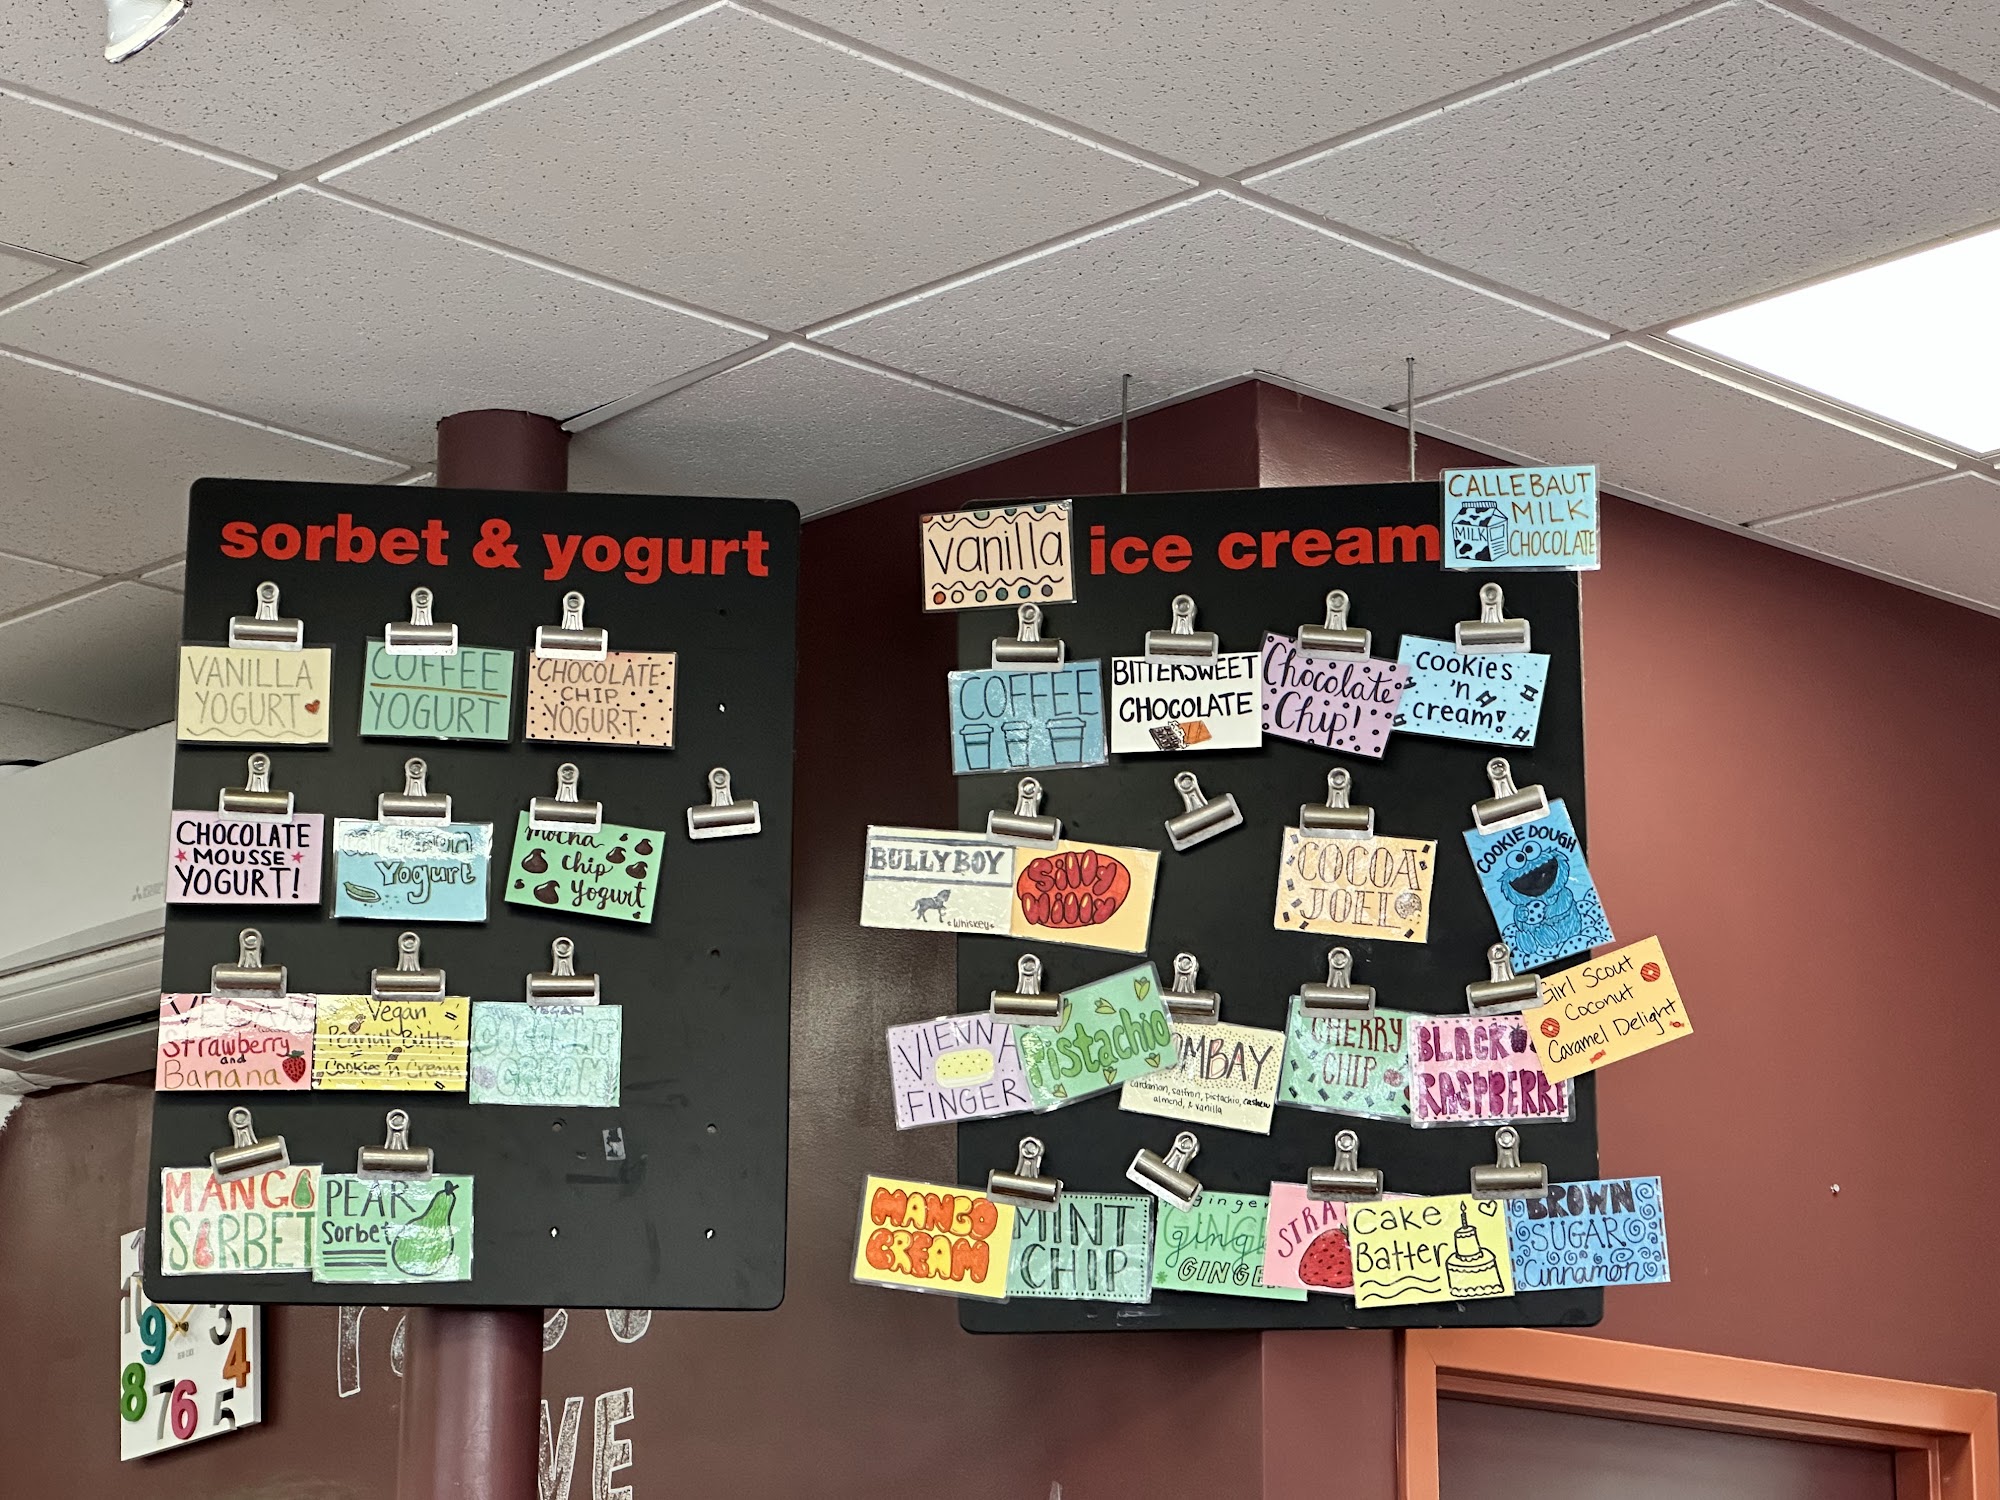 sorbet & yogurt
VANILLA
YOGURT
COFFEE
YOGURT
CHOCOLATE
CHIP
YOGURT
CHOCOLATE
MOUSSE
YOGURT!
Yogurt
Mocha
Chip
Yogurt
VEGAN
Strawberry
and
Banana
Vegan
Peanut Butter
Cookies n Cream
VEGAN
COCONUT
CREAM
MANGO
SORBET
PEAR
Sorbet
vanilla
ice cream
CALLEBAUT
MILK
CHOCOLATE
MILK
COFFEE
BITTERSWEET
CHOCOLATE
Chocolate
Chip!
cookies
'n
cream!
BULLYBOY
whiskey
Silly
Willy
COCOA
JOEL
COOKIE DOUGH
VIENNA
FINGER
Pistachio
OMBAY
cardamon, saffron, pistachio, cashew
almond, & vanilla
CHERRY
CHIP
BLACK
RASPBERRY
Girl Scout
Coconut
Caramel Delight
MANGO
CREAM
MINT
CHIP
ginger
GING
ginge
GINGE
STRA
Cake
Batter
BROWN
SUGAR
Cinnamon
9
3
4
8
7
6
5